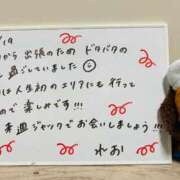 /19
から 出張のため ドタバタの
過ごしていました
は人生初の エリアにも 行って
で 楽しみです!!!
来週ジャックでお会いしましょう!!
れお